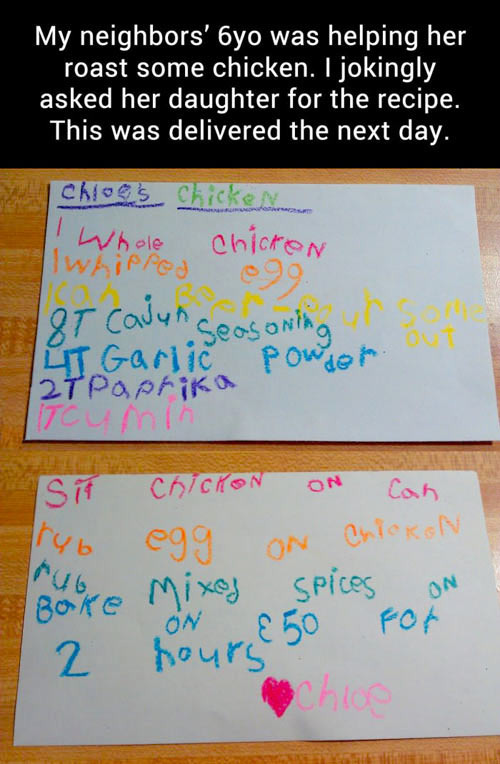 My neighbors' 6yo was helping her
roast some chicken. I jokingly
asked her daughter for the recipe.
This was delivered the next day.
Chloes Chicken
1 Whole Chicken
1 Whipped egg
1 can Beer-Pour some out
8T Cajun Seasoning
4T Garlic Powder
2T Paprika
1T Cumin
Sit Chicken on Can
rub egg on Chicken
rub Mixed Spices on
Bake on 350 For
2 hours
Chloe